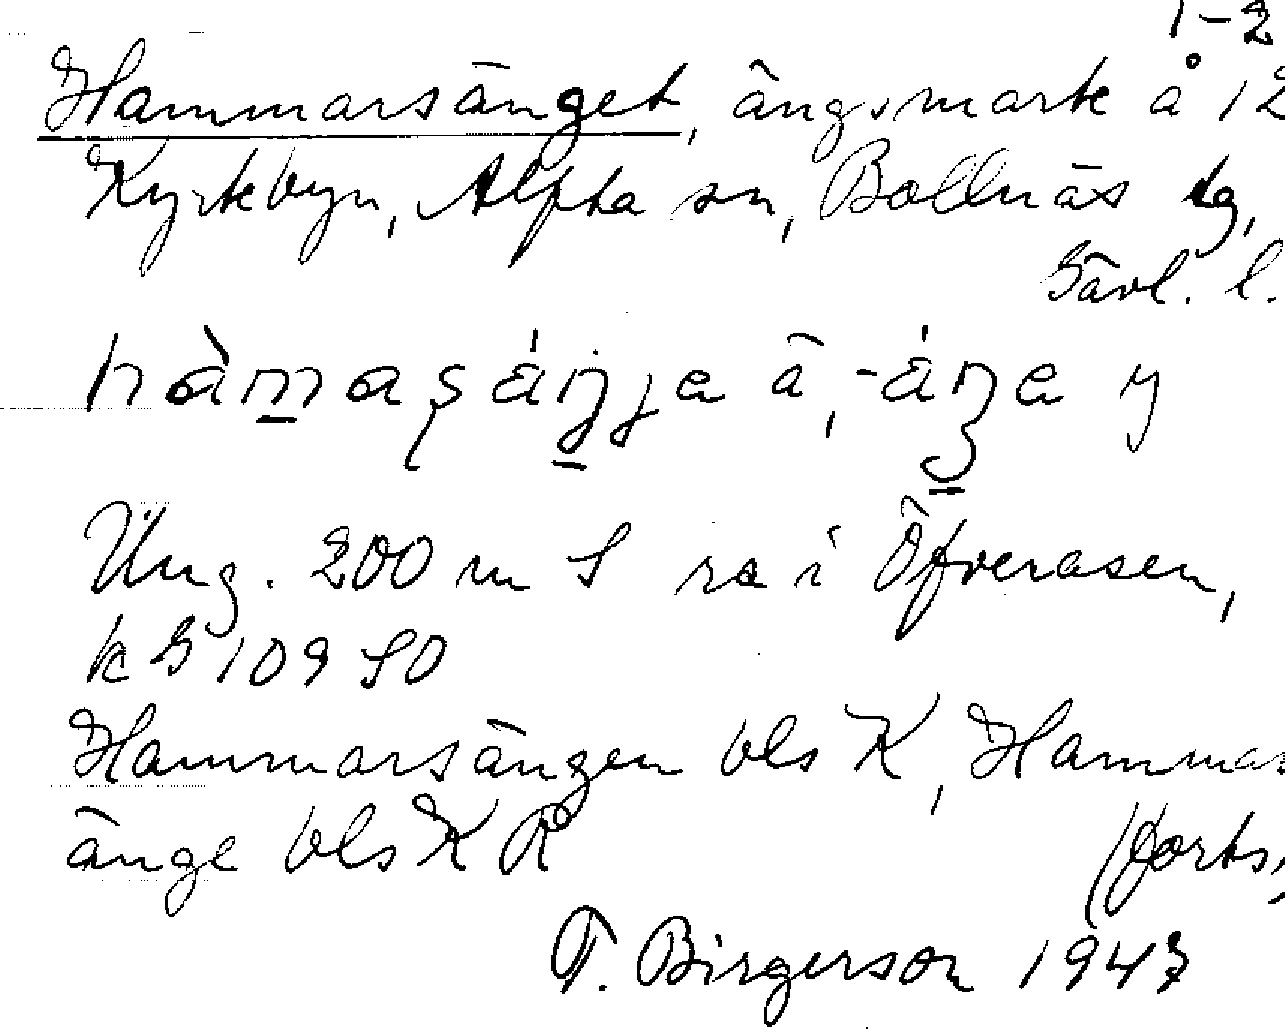 1-2
Hammarsänget, ängsmark å 12
Kyrkbyn, Alfta sn, Bollnäs tg,
Gävl. l.
Ung. 200 m S ra i Öfverasen,
k G 109 SO
Hammarsängen bls K, Hammars
änge bls K R
(forts.
T. Birgerson 1947